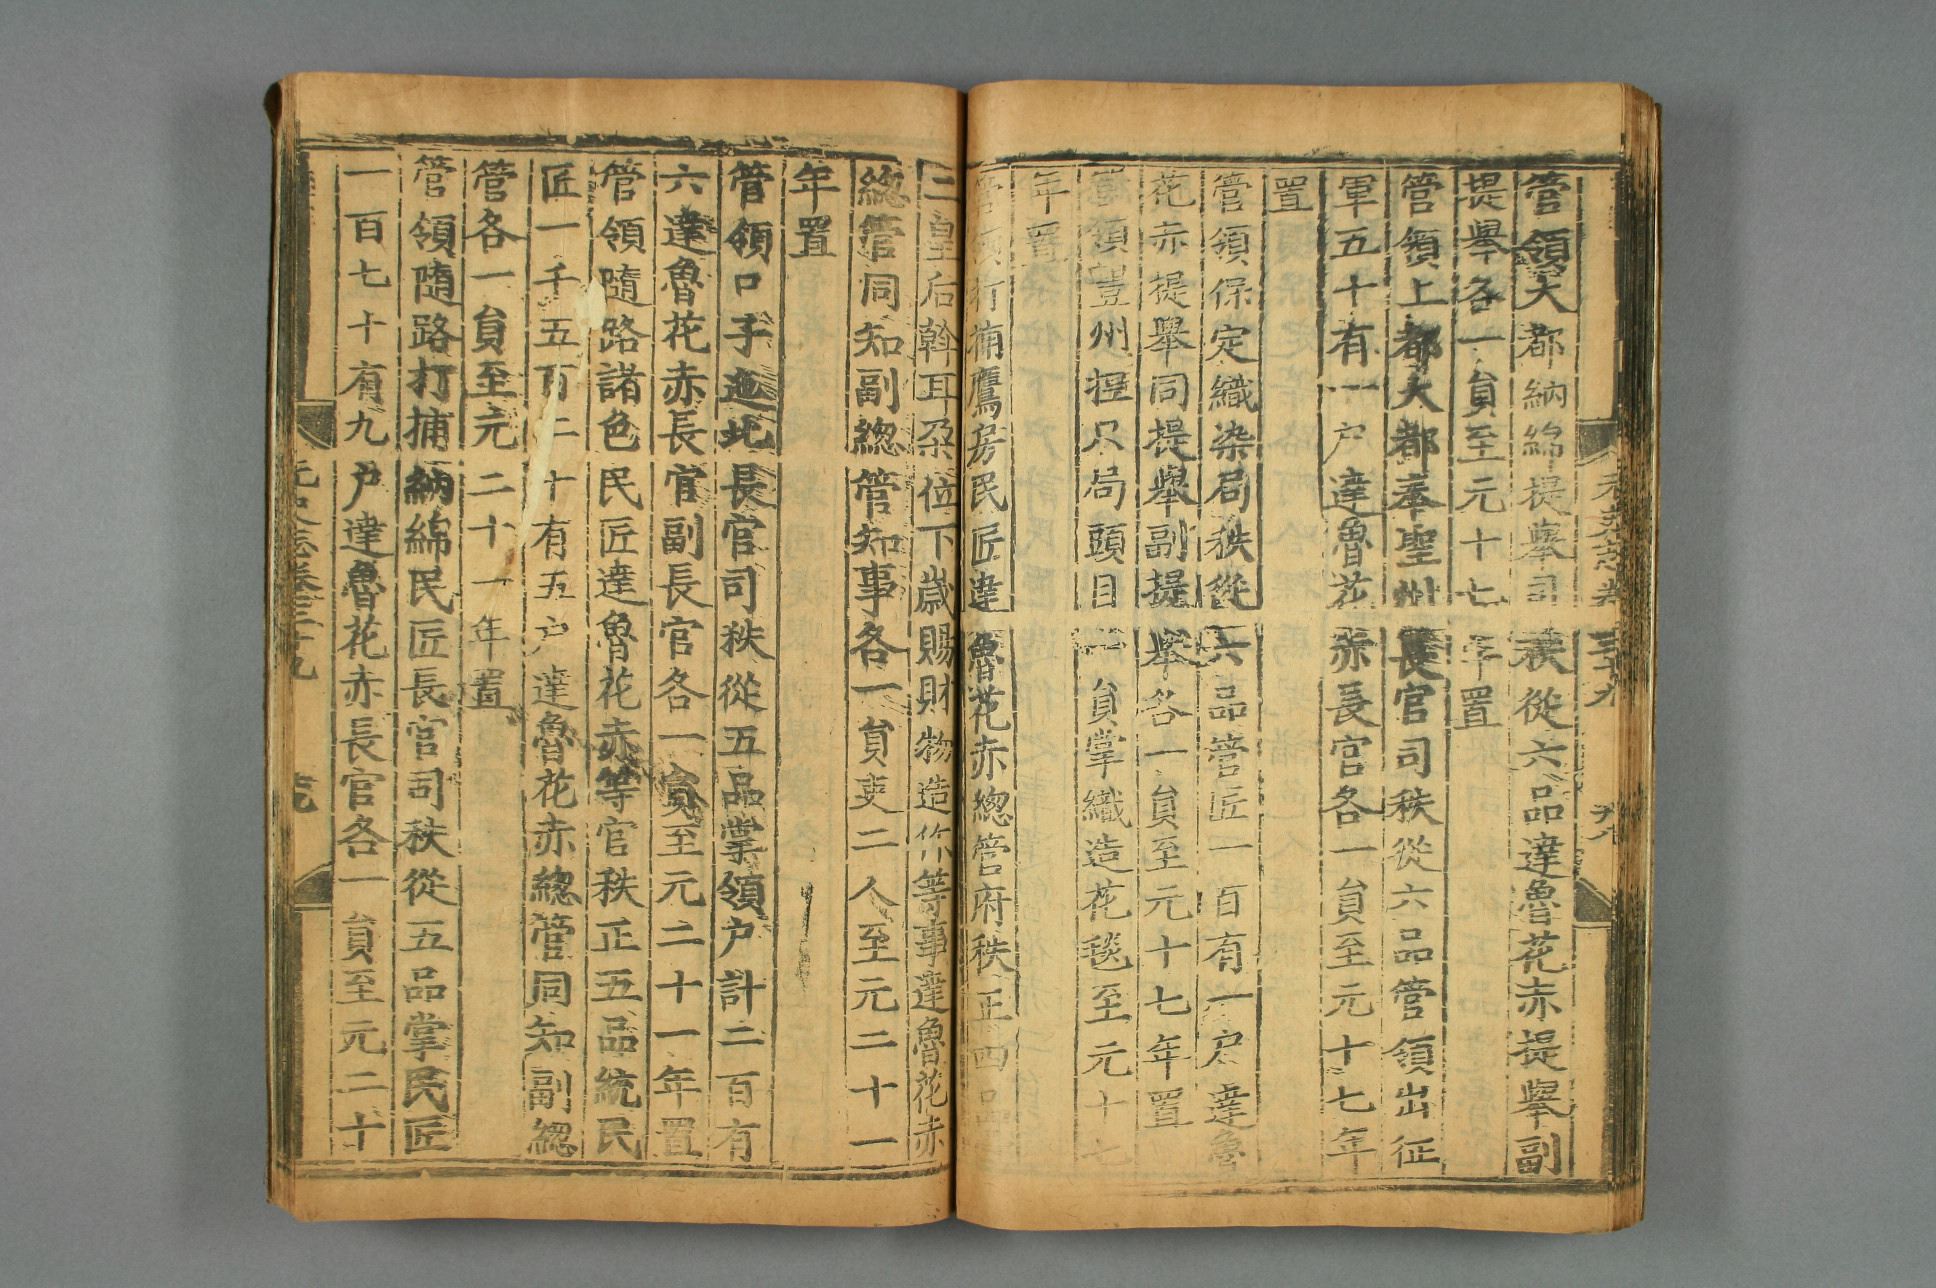 管領大都納綿提舉司秩從六品達魯花赤提舉副
提舉各一員至元十七年置
管領上都大都奉聖州長官司秩從六品管領出征
軍五十有一户達魯花赤長官各一員至元十七年
置
管領保定織染局秩從六品管匠一百有一户達魯
花赤提舉同提舉副提舉各一員至元十七年置
管領豊州捏只局頭目一員掌織造花毯至元十七
年置
管領打捕鷹房民匠達魯花赤總管府秩正四品
二皇后斡耳朶位下歲賜財物造作等事達魯花赤
總管同知副總管知事各一員吏二人至元二十一
年置
管領口子迤北長官司秩從五品掌領户計二百有
六達魯花赤長官副長官各一員至元二十一年置
管領隨路諸色民匠達魯花赤等官秩正五品統民
匠一千五百二十有五户達魯花赤總管同知副總
管各一員至元二十一年置
管領隨路打捕納綿民匠長官司秩從五品掌民匠
一百七十有九戸達魯花赤長官各一員至元二十
元史志卷三十九